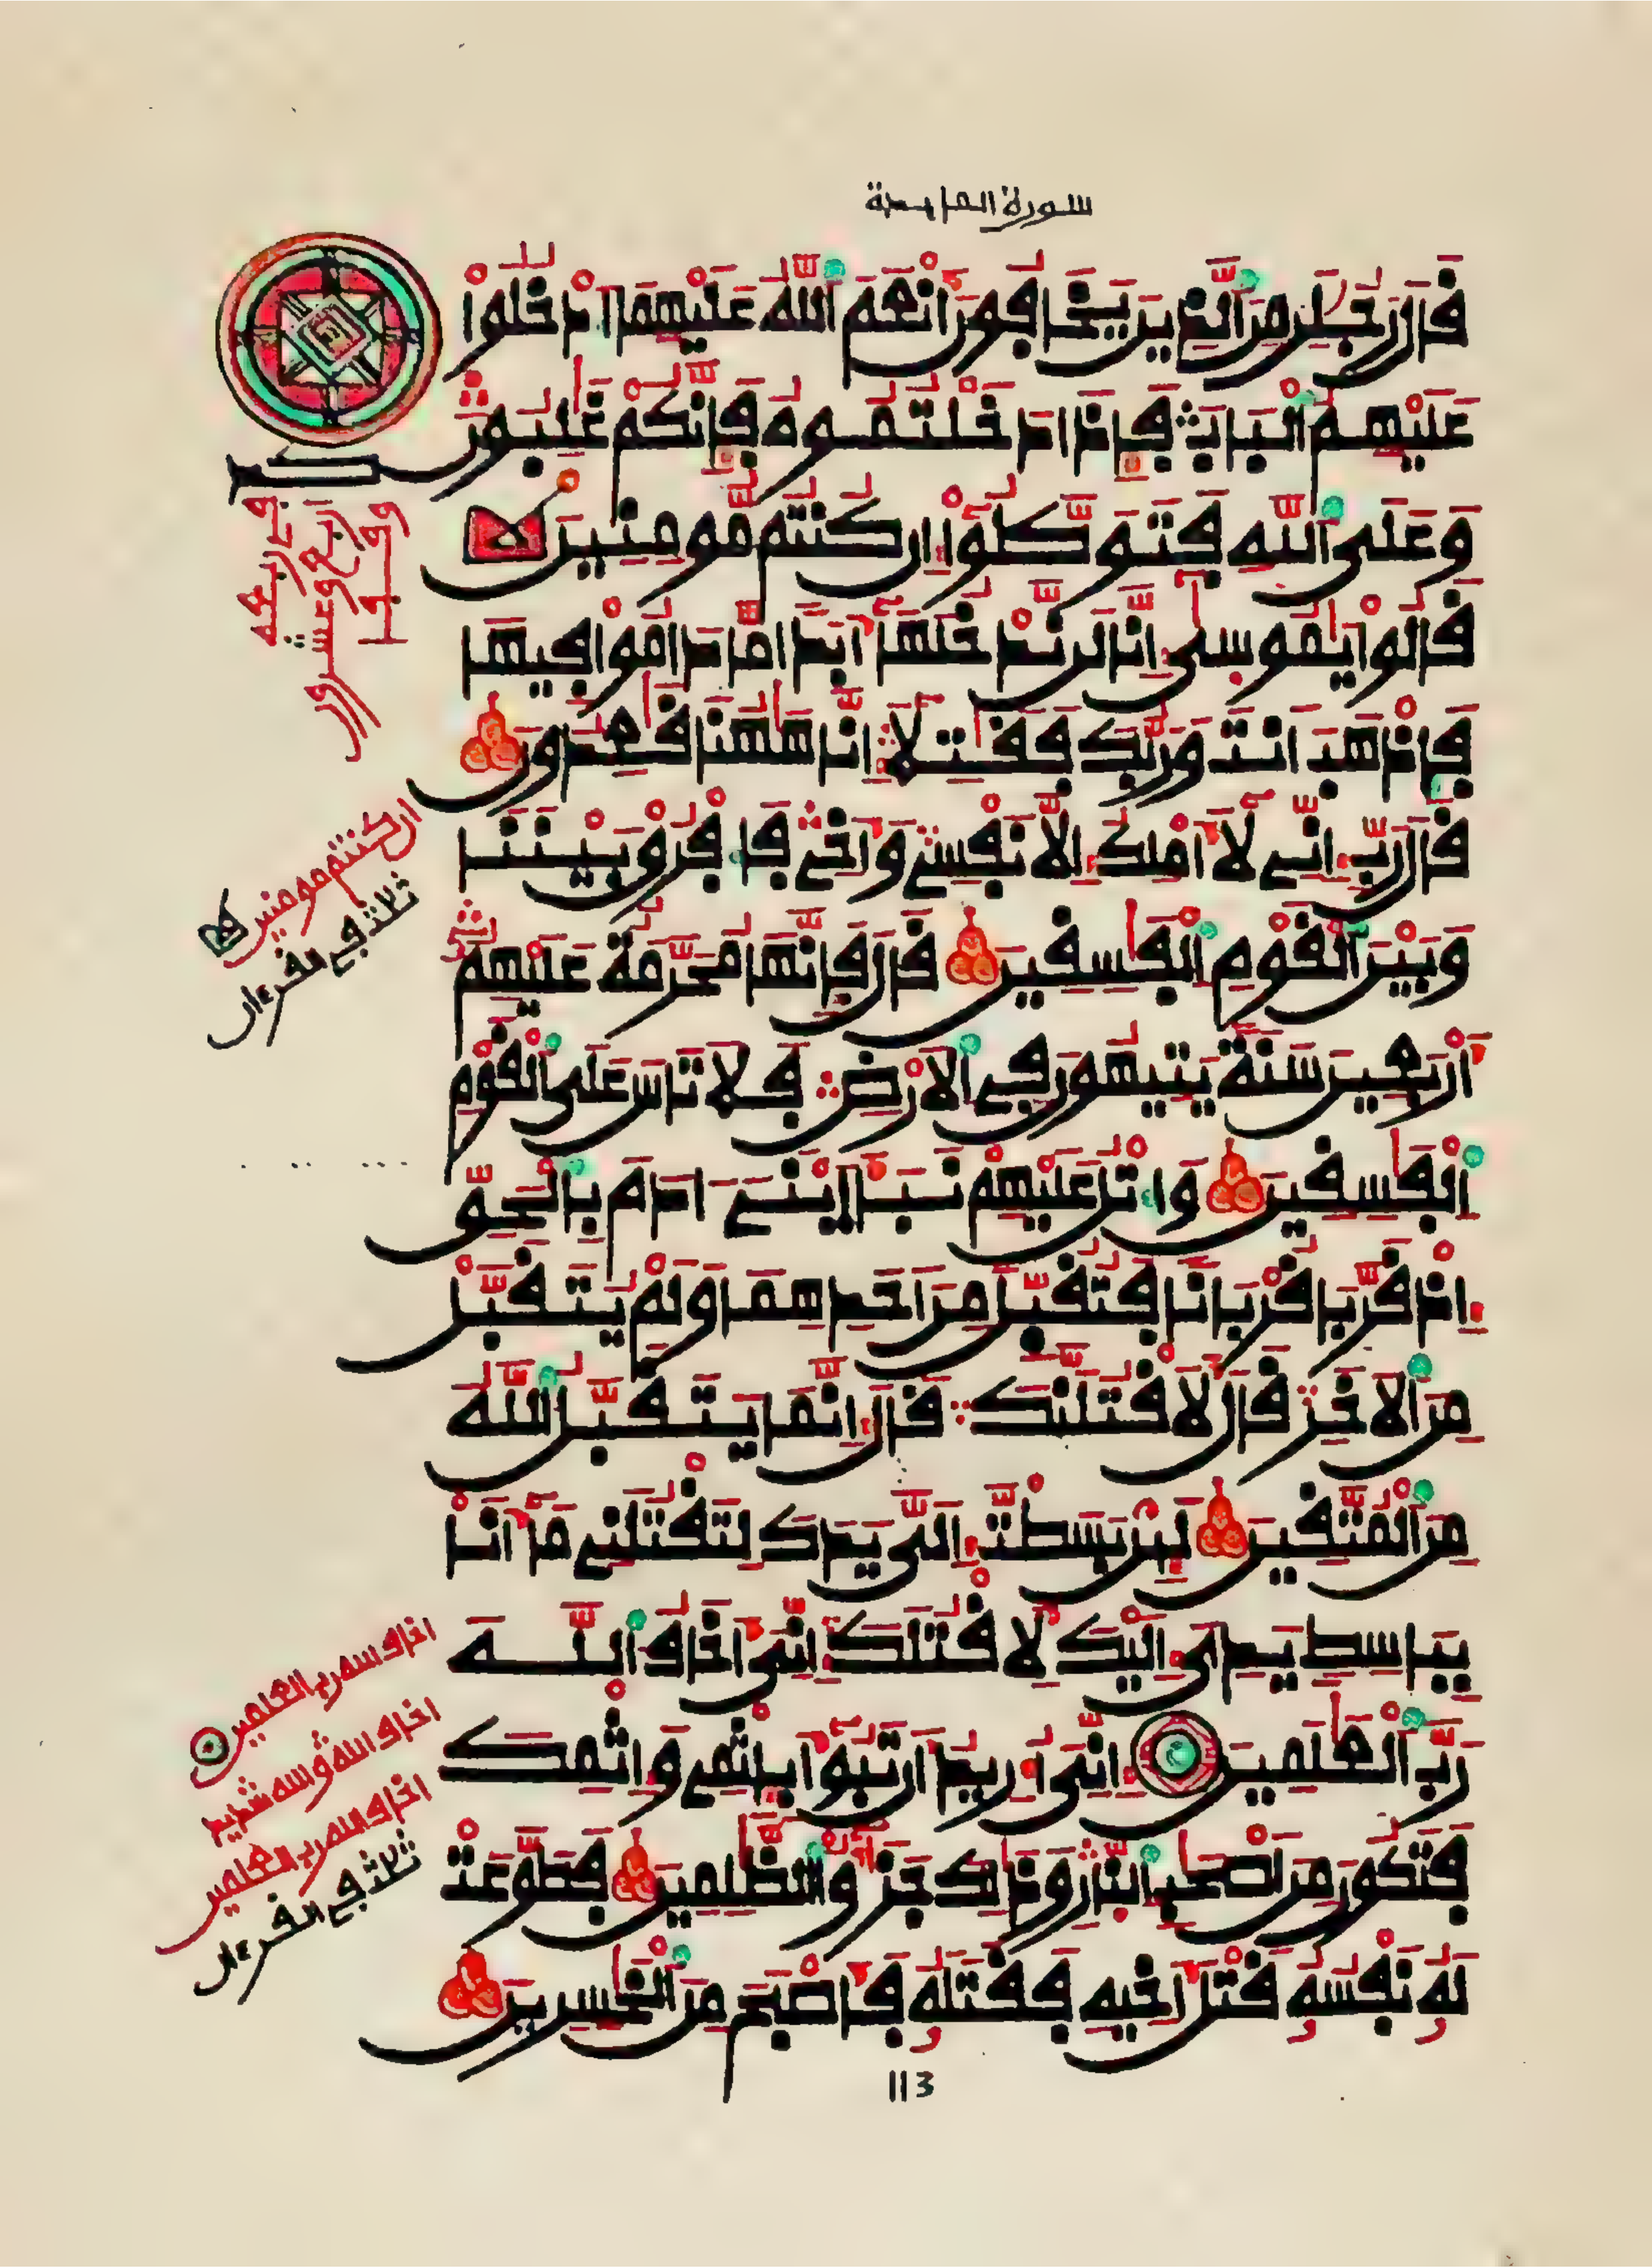 سورة المايدة
قَالَ رَجُلَٰنِ مِنَ ٱلذِينَ يَخَافُونَ أَنْعَمَ ٱللَّهُ عَلَيْهِمَا ٱدْخُلُواْ
عَلَيْهِمُ ٱلْبَابَ فَإِذَا دَخَلْتُمُوهُ فَإِنَّكُمْ غَٰلِبُونَ
وَعَلَى ٱللَّهِ فَتَوَكَّلُوٓاْ إِن كُنتُم مُّومِنِينَ
قَالُواْ يَٰمُوسَىٰٓ إِنَّا لَن نَّدْخُلَهَآ أَبَدًا مَّا دَامُواْ فِيهَا
فَاذْهَبَ اَنتَ وَرَبُّكَ فَقَٰتِلَآ إِنَّا هَٰهُنَا قَٰعِدُونَ
قَالَ رَبِّ إِنِّي لَآ أَمْلِكُ إِلَّا نَفْسِي وَأَخِي فَافْرُقْ بَيْنَنَا
وَبَيْنَ ٱلْقَوْمِ ٱلْفَٰسِقِينَ قَالَ فَإِنَّهَا مُحَرَّمَةٌ عَلَيْهِمُۥٓ
أَرْبَعِينَ سَنَةً يَتِيهُونَ فِي ٱلَارْضِ فَلَا تَاسَ عَلَى ٱلْقَوْمِ
ٱلْفَٰسِقِينَ وَاتْلُ عَلَيْهِمْ نَبَأَ ٱبْنَيَ ادَمَ بِالْحَقِّ
إِذْ قَرَّبَا قُرْبَانًا فَتُقُبِّلَ مِنَ اَحَدِهِمَا وَلَمْ يُتَقَبَّلْ
مِنَ ٱلَاخَرِ قَالَ لَأَقْتُلَنَّكَ قَالَ إِنَّمَا يَتَقَبَّلُ ٱللَّهُ
مِنَ ٱلْمُتَّقِينَ لَئِنۢ بَسَطتَ إِلَيَّ يَدَكَ لِتَقْتُلَنِي مَآ أَنَا
بِبَاسِطٍ يَدِيَ إِلَيْكَ لِأَقْتُلَكَ إِنِّيَ أَخَافُ ٱللَّهَ
رَبَّ ٱلْعَٰلَمِينَ إِنِّيَ أُرِيدُ أَن تَبُوٓأَ بِإِثْمِي وَإِثْمِكَ
فَتَكُونَ مِنَ اَصْحَٰبِ ٱلنَّارِ وَذَٰلِكَ جَزَٰٓؤُاْ ٱلظَّٰلِمِينَ فَطَوَّعَتْ
لَهُۥ نَفْسُهُۥ قَتْلَ أَخِيهِ فَقَتَلَهُۥ فَأَصْبَحَ مِنَ ٱلْخَٰسِرِينَ
اربع وعشرون
ان كنتم مومنين
ثلاثة في القرءان
اخاف الله رب العلمين
اخاف الله والله شديد
اخاف الله رب العلمين
ثلاثة في القرءان
113